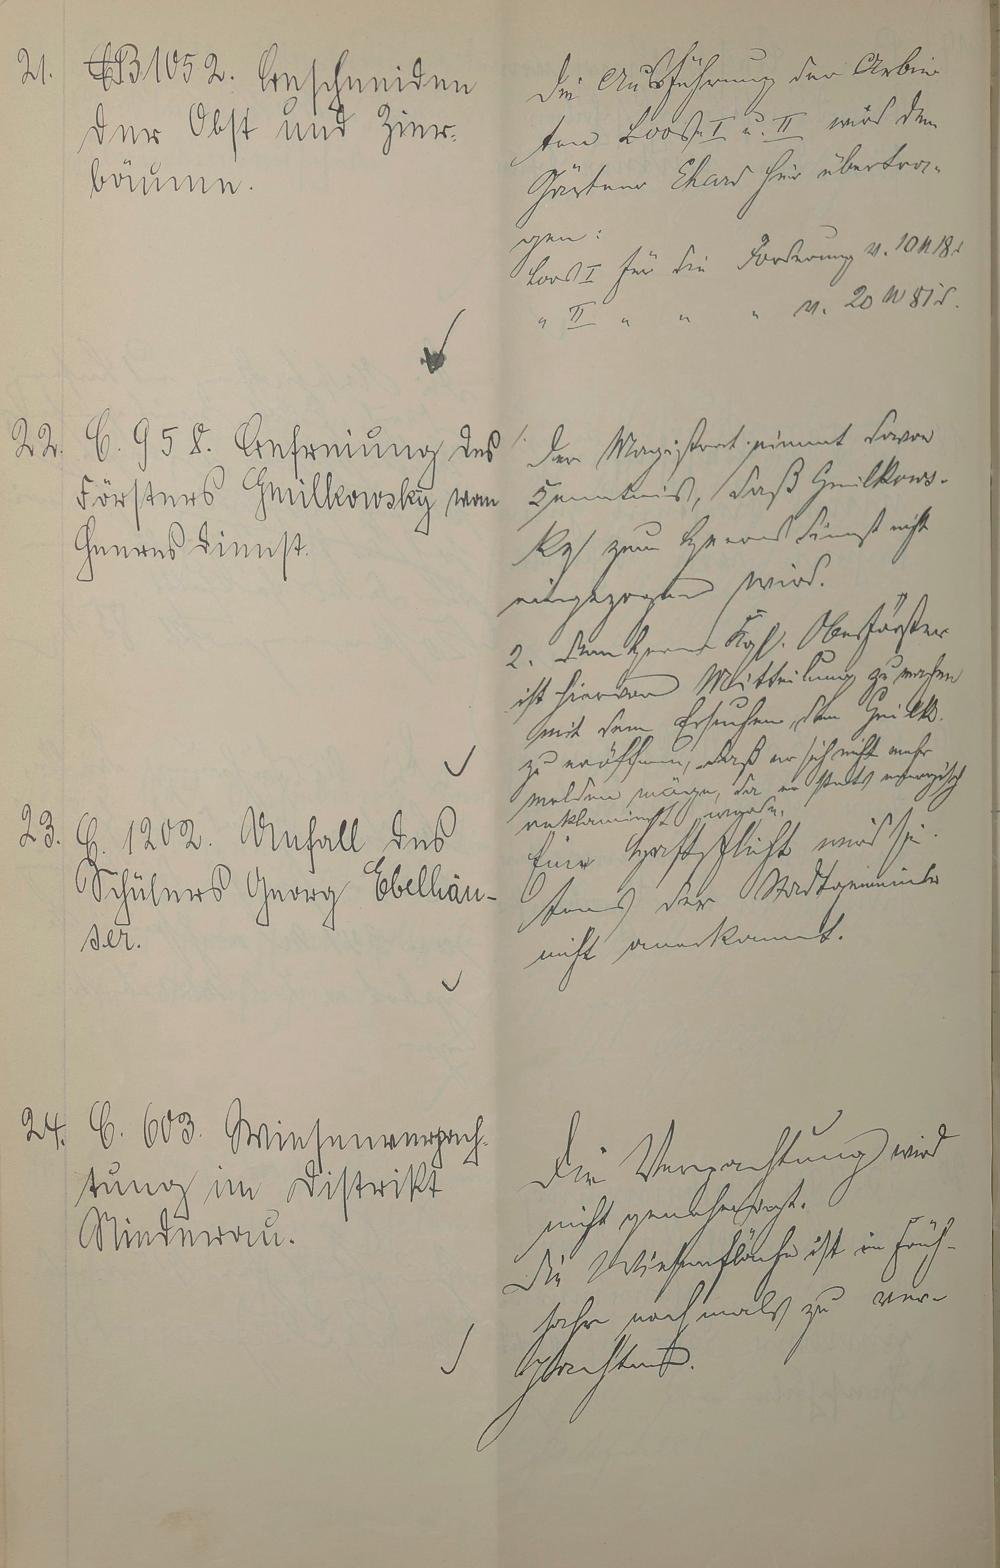 21. B 1052. Beschneiden
der Obst und Zier-
bäume.
Die Ausführung der Arbei-
ten Loos I u. II wird dem
Gärtner Ehard hier übertra-
gen:
Loos I für die Forderung v. 10 M 18 d
" II " " " v. 20 M 87 d.
22. C. 958. Befreiung des
Försters Gmilkowsky vom
Heeresdienst.
1. Der Magistrat nimmt davon
Kenntnis, daß Gmilkows-
ky zum Heeresdienst nicht
eingezogen wird.
2. Dem Herrn Kgl. Oberförster
ist hiervon Mitteilung zu machen
mit dem Ersuchen, dem Gmilk.
zu eröffnen, daß er sich nicht mehr
melden möge, da er stets energisch
reklamiert werde.
23. C. 1202. Unfall des
Schülers Georg Ebelhäu-
ser.
Eine Haftpflicht wird sei-
tens der Stadtgemeinde
nicht anerkannt.
24. C. 603. Wiesenverpach-
tung im Distrikt
Niederau.
Die Verpachtung wird
nicht genehmigt.
Die Wiesenfläche ist im Früh-
jahr nochmals zu ver-
pachten.